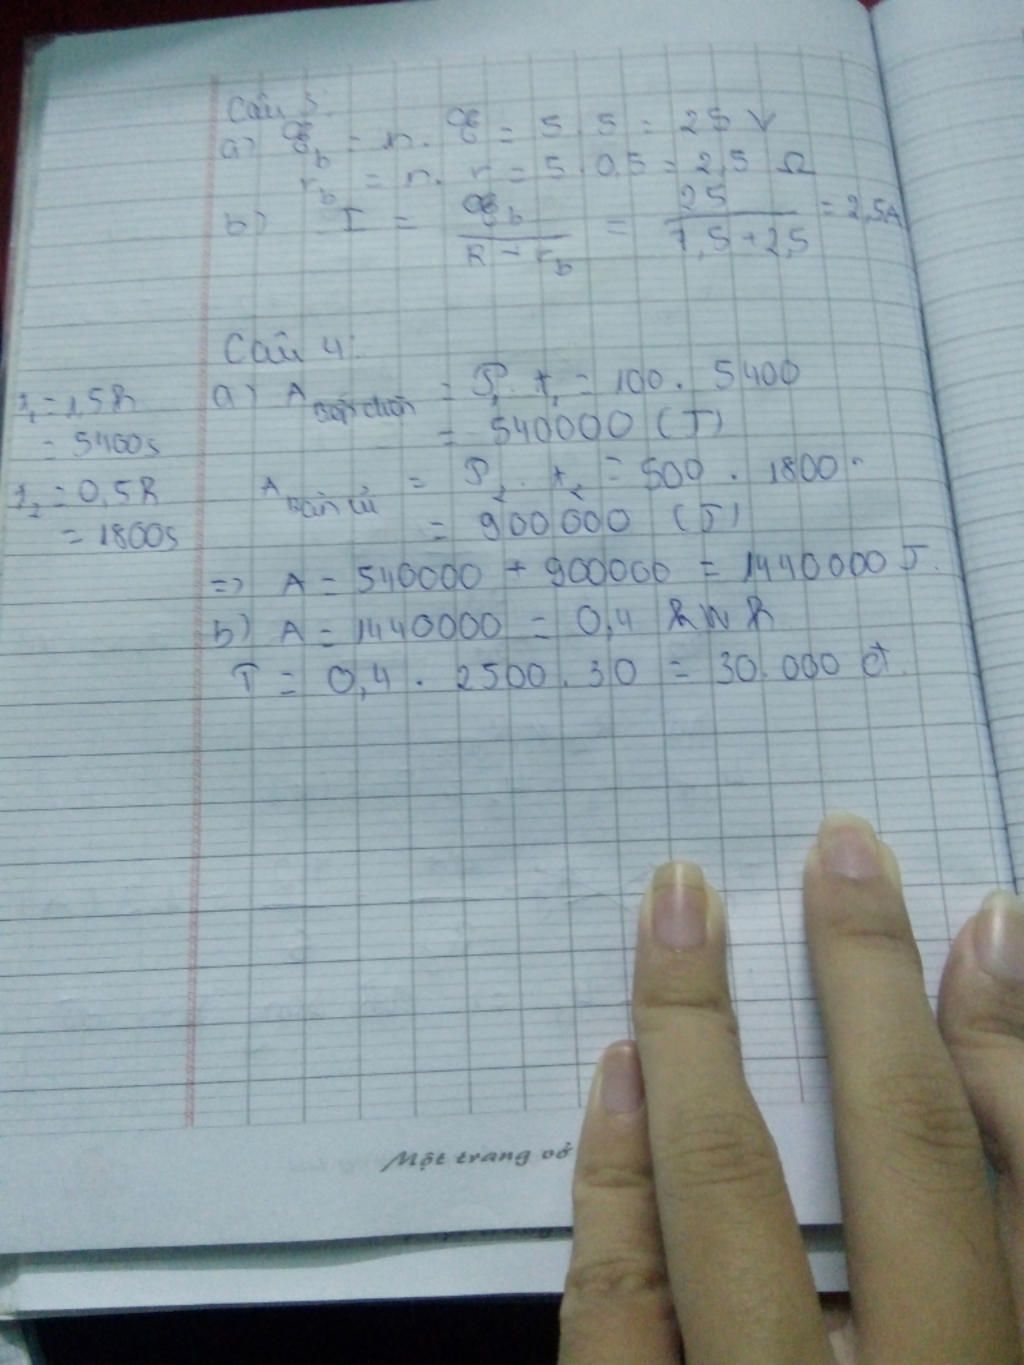 Câu 5:
a) ξb = n. ξ = 5.5 = 25 V
rb = n. r = 5.0,5 = 2,5 Ω
b) I = ξb / R - rb = 25 / 7,5 + 2,5 = 2,5A
Câu 4:
t1 = 1,5h
= 5400s
a) A = P1. t1 = 100. 5400
= 540000 (J)
t2 = 0,5h
= 1800s
A bàn ủi = P2. t2 = 500. 1800
= 900000 (J)
=> A = 540000 + 900000 = 1440000 J.
b) A = 1440000 = 0,4 kWh
T = 0,4. 2500.30 = 30.000 đ.
Một trang vở